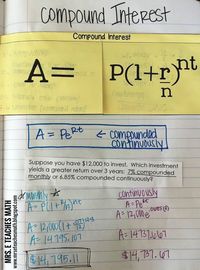 Compound Interest
Compound Interest
A= P(1+r/n)^nt
A = Pe^Rt ← compounded continuously
Suppose you have $12,000 to invest. Which investment
yields a greater return over 3 years: 7% compounded
monthly or 6.85% compounded continuously?
monthly
A = P(1 + r/n)^nt
A = 12,000(1 +
A = 14795.107
$14,795.11
continuously
A = Pe^Rt
A = 12,000e
A = 14737.667
$14,737.67
MRS. E TEACHES MATH
www.mrseteachesmath.blogspot.com